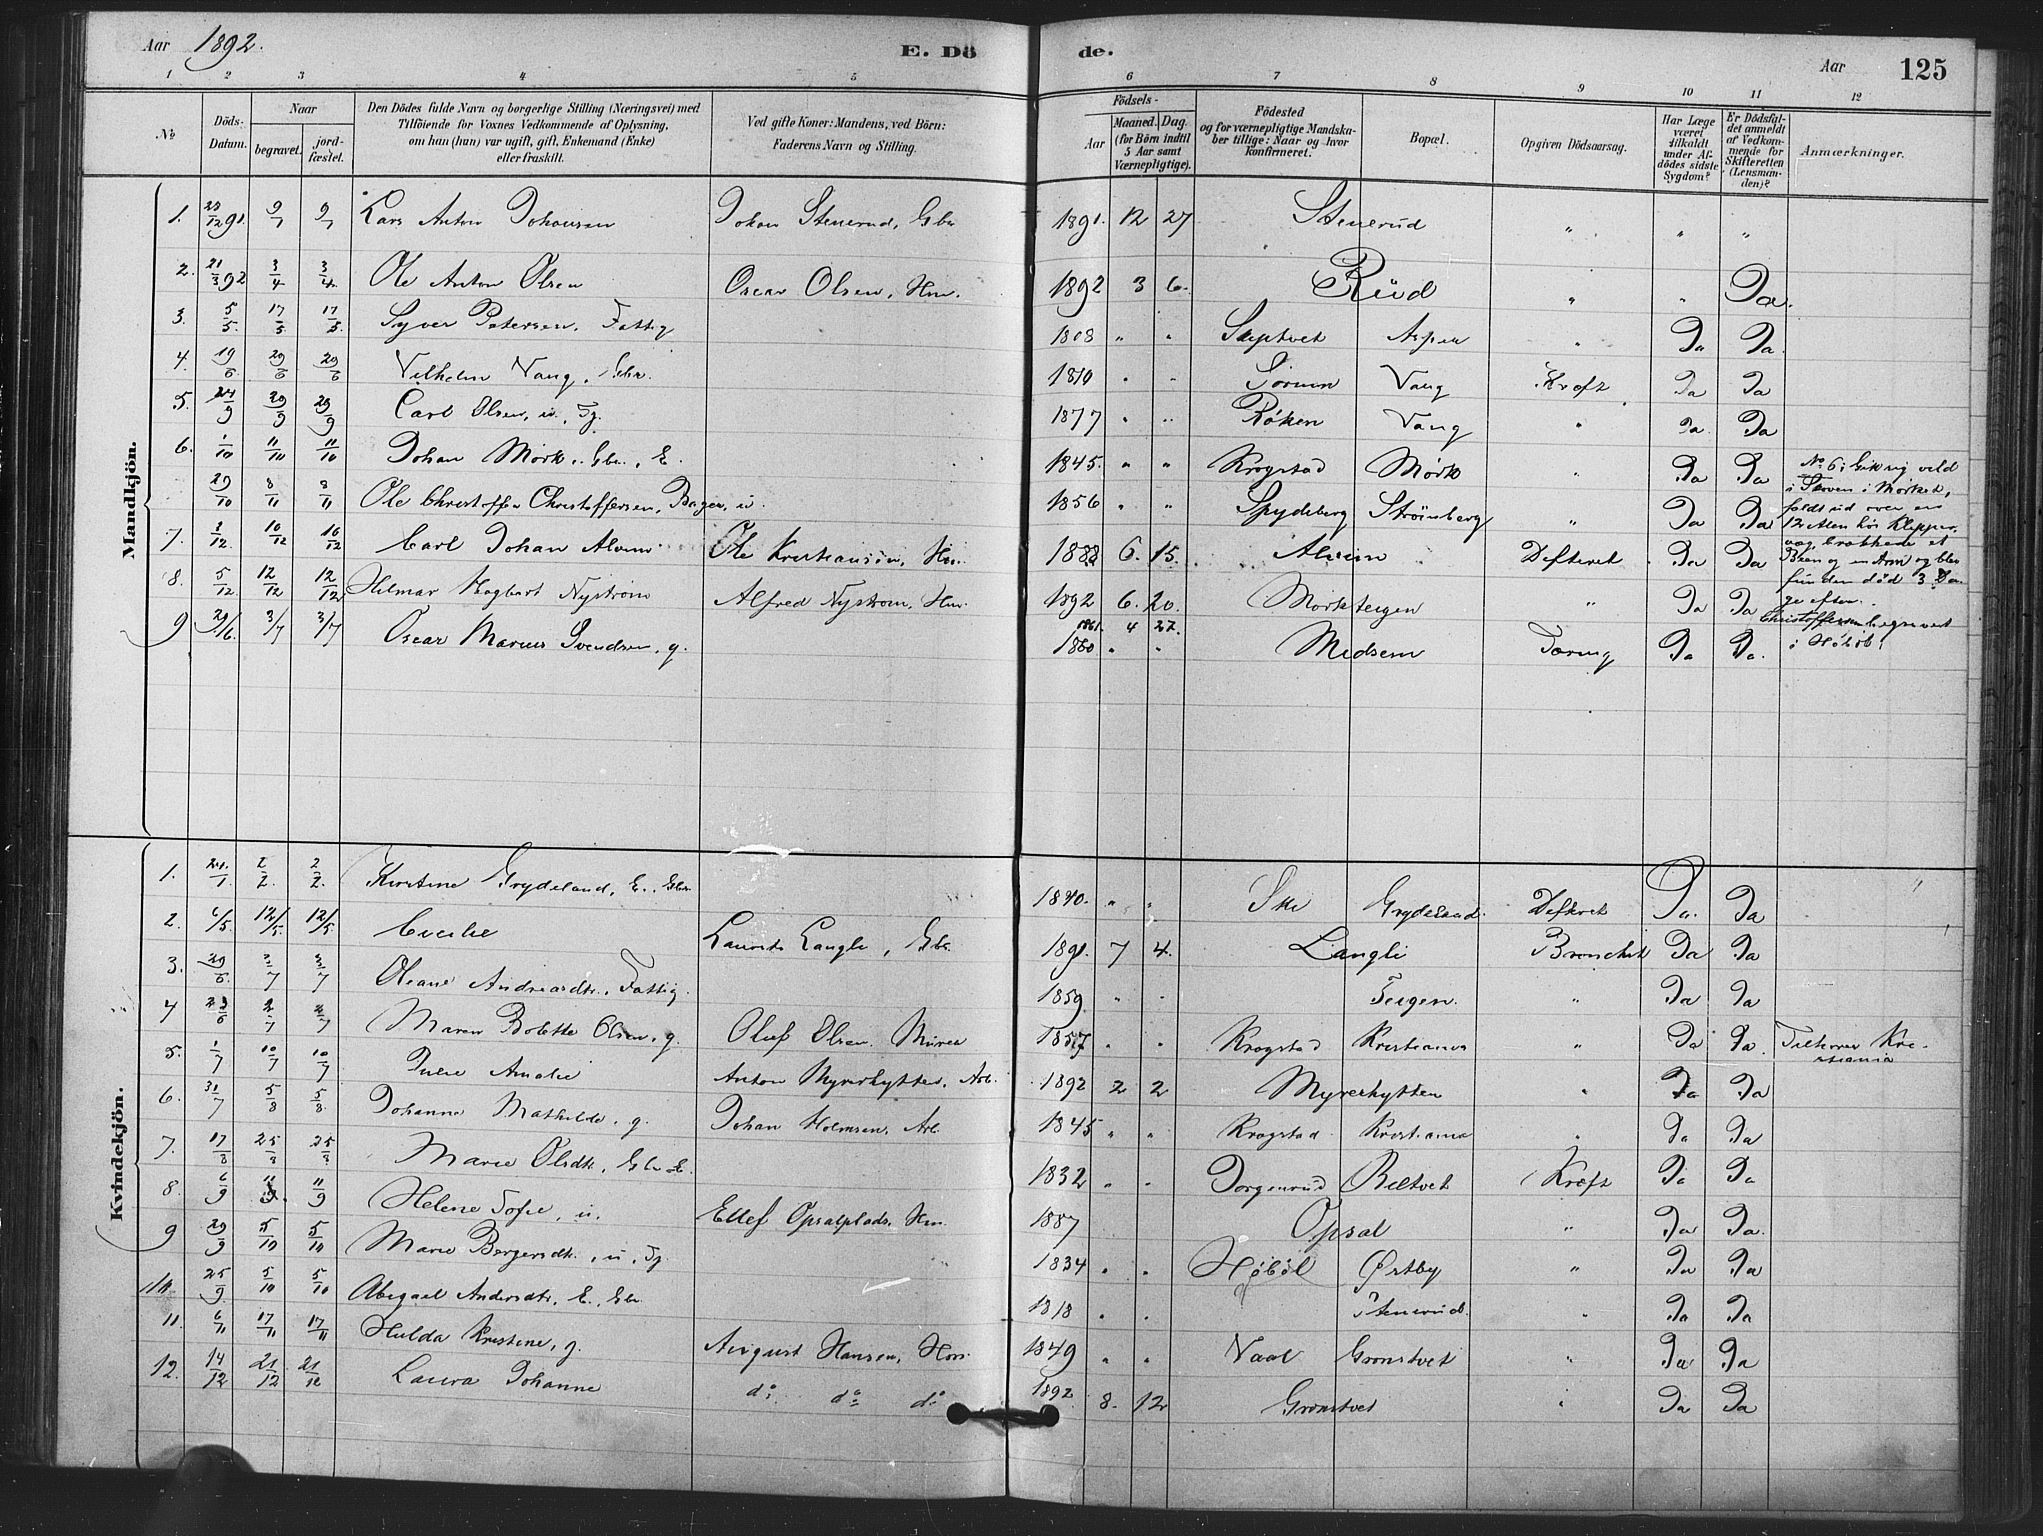 Aar 1892. E. Dö de. Aar 125
1 2 3 4 5 6 7 8 9 10 11 12
No
Döds-Datum.
Naar
begravet.
jord-fæstet.
Den Dödes fulde Navn og borgerlige Stilling (Næringsvei) med
Tilföiende for Voxnes Vedkommende af Oplysning,
om han (hun) var ugift, gift, Enkemand (Enke)
eller fraskilt.
Ved gifte Koner: Mandens, ved Börn:
Faderens Navn og Stilling.
Födsels-
Aar
Maaned. Dag.
(for Börn indtil
5 Aar samt
Værnepligtige).
Födested
og for værnepligtige Mandska-
ber tillige: Naar og hvor
konfirmeret.
Bopæl.
Opgiven Dödsaarsag.
Har Læge
været
tilkaldt
under Af-
dödes sidste
Sygdom?
Er Dödsfal-
det anmeldt
af Vedkom-
mende for
Skifteretten
(Lensman-
den)?
Anmærkninger.
Mandkjön.
1. 9/1 9/1 Lars Anton Johansen Johan Stenerud, Gbr 1891. 12 27 Stenerud " " "
2. 21/3 92 3/4 3/4 Ole Anton Olsen Oscar Olsen, Hm. 1892 3 6. Rüd " " Ja.
3. 5/5. 17/5 17/5 Syver Petersen, Fattig 1808 " " Skiptvet Aspen " Ja Ja.
4. 19/6 29/6 29/6 Vilhelm Vang, Gbr. 1810 " " Sørum Vang Kræft Ja Ja
5. 24/9 29/9 29/9 Carl Olsen, u. Tj. 1877 " " Røken Vang " Ja. Ja
6. 1/10 11/10 11/10 Johan Mørk, Gbr., E. 1845. " " Krogstad Mørk " Ja Ja No 6: Gik sig vild
29/10 8/11 8/11 Ole Christoffer Christoffersen, Bager, u. 1856 " " Spydeberg Strømberg " Ja Ja i Skoven i Mørket,
faldt ud over en
7. 1/12. 10/12 10/12 Carl Johan Alvim Ole Kristiansen, Hm. 6. 15. Alvim Difterit Ja Ja 12 Alen høi Klippe,
og brækkede et
Been og en Arm og blev
8. 5/12. 12/12 12/12 Hilmar Hagbart Nystrøm Alfred Nystrøm, Hm. 1892 6. 20. Mørkteigen " Ja Ja funden død 3 Da-
ge efter.
9 29/6 3/7 3/7 Oscar Marius Svendsen, g. 1861. 4 27. 1860 " " Midsem Tæring Ja Ja. Christoffersen begravet
i Høbøl.
Kvindekjön.
1. 24/1. 2/2. 2/2. Kirstine Grydeland, E., Gbr. 1840. " " Ski Grydeland. Difterit Ja. Ja
2. 6/5. 12/5. 12/5. Cecilie Laurits Langli, Gbr. 1891. 7 4. Langli Bronchit Ja Ja
3. 29/6. 3/7 3/7 Oleane Andreasdtr., Fattig. 1859 " " Teigen. " Ja Ja
4 2/7 2/7 Maren Bolette Olsen, g. Oluf Olsen, Murer 1857 " " Krogstad Kristiania " Ja Ja. Tilhører Kri-
stiania
5. 1/7 10/7 10/7 Julie Amalie Anton Myrerhytten, Arb. 1892 2 2 Myrerhytten " Ja Ja
6. 31/7 5/8 5/8 Johanne Mathilde, g. Johan Holmsen, Arb. 1845 " " Krogstad Kristiania " Ja Ja
7. 17/8 25/8 25/8 Marie Olsdtr., Gbr. E. 1832 " " Jorgenrud Biltvet Kræft Ja Ja
8. 6/9 11/9. 11/9 Helene Sofie, u. Ellef Opsalplads, Hm. 1887 Opsal " Ja Ja.
9 29/9 5/10 5/10 Marie Bergersdtr., u., Tj. 1834 " " Høbøl Østby " Ja Ja
10. 25/9. 5/10 5/10 Abigael Andersdtr., E., Gbr. 1818 " " Stenerud. " Ja Ja
11. 6/11 17/11 17/11 Hulda Kristine, g. August Hansen, Hm. 1849 " " Vaal Grønstvet " Ja Ja
12. 14/12 21/12 21/12 Laura Johanne do do do 1892 8. 12 Grønstvet " Ja Ja